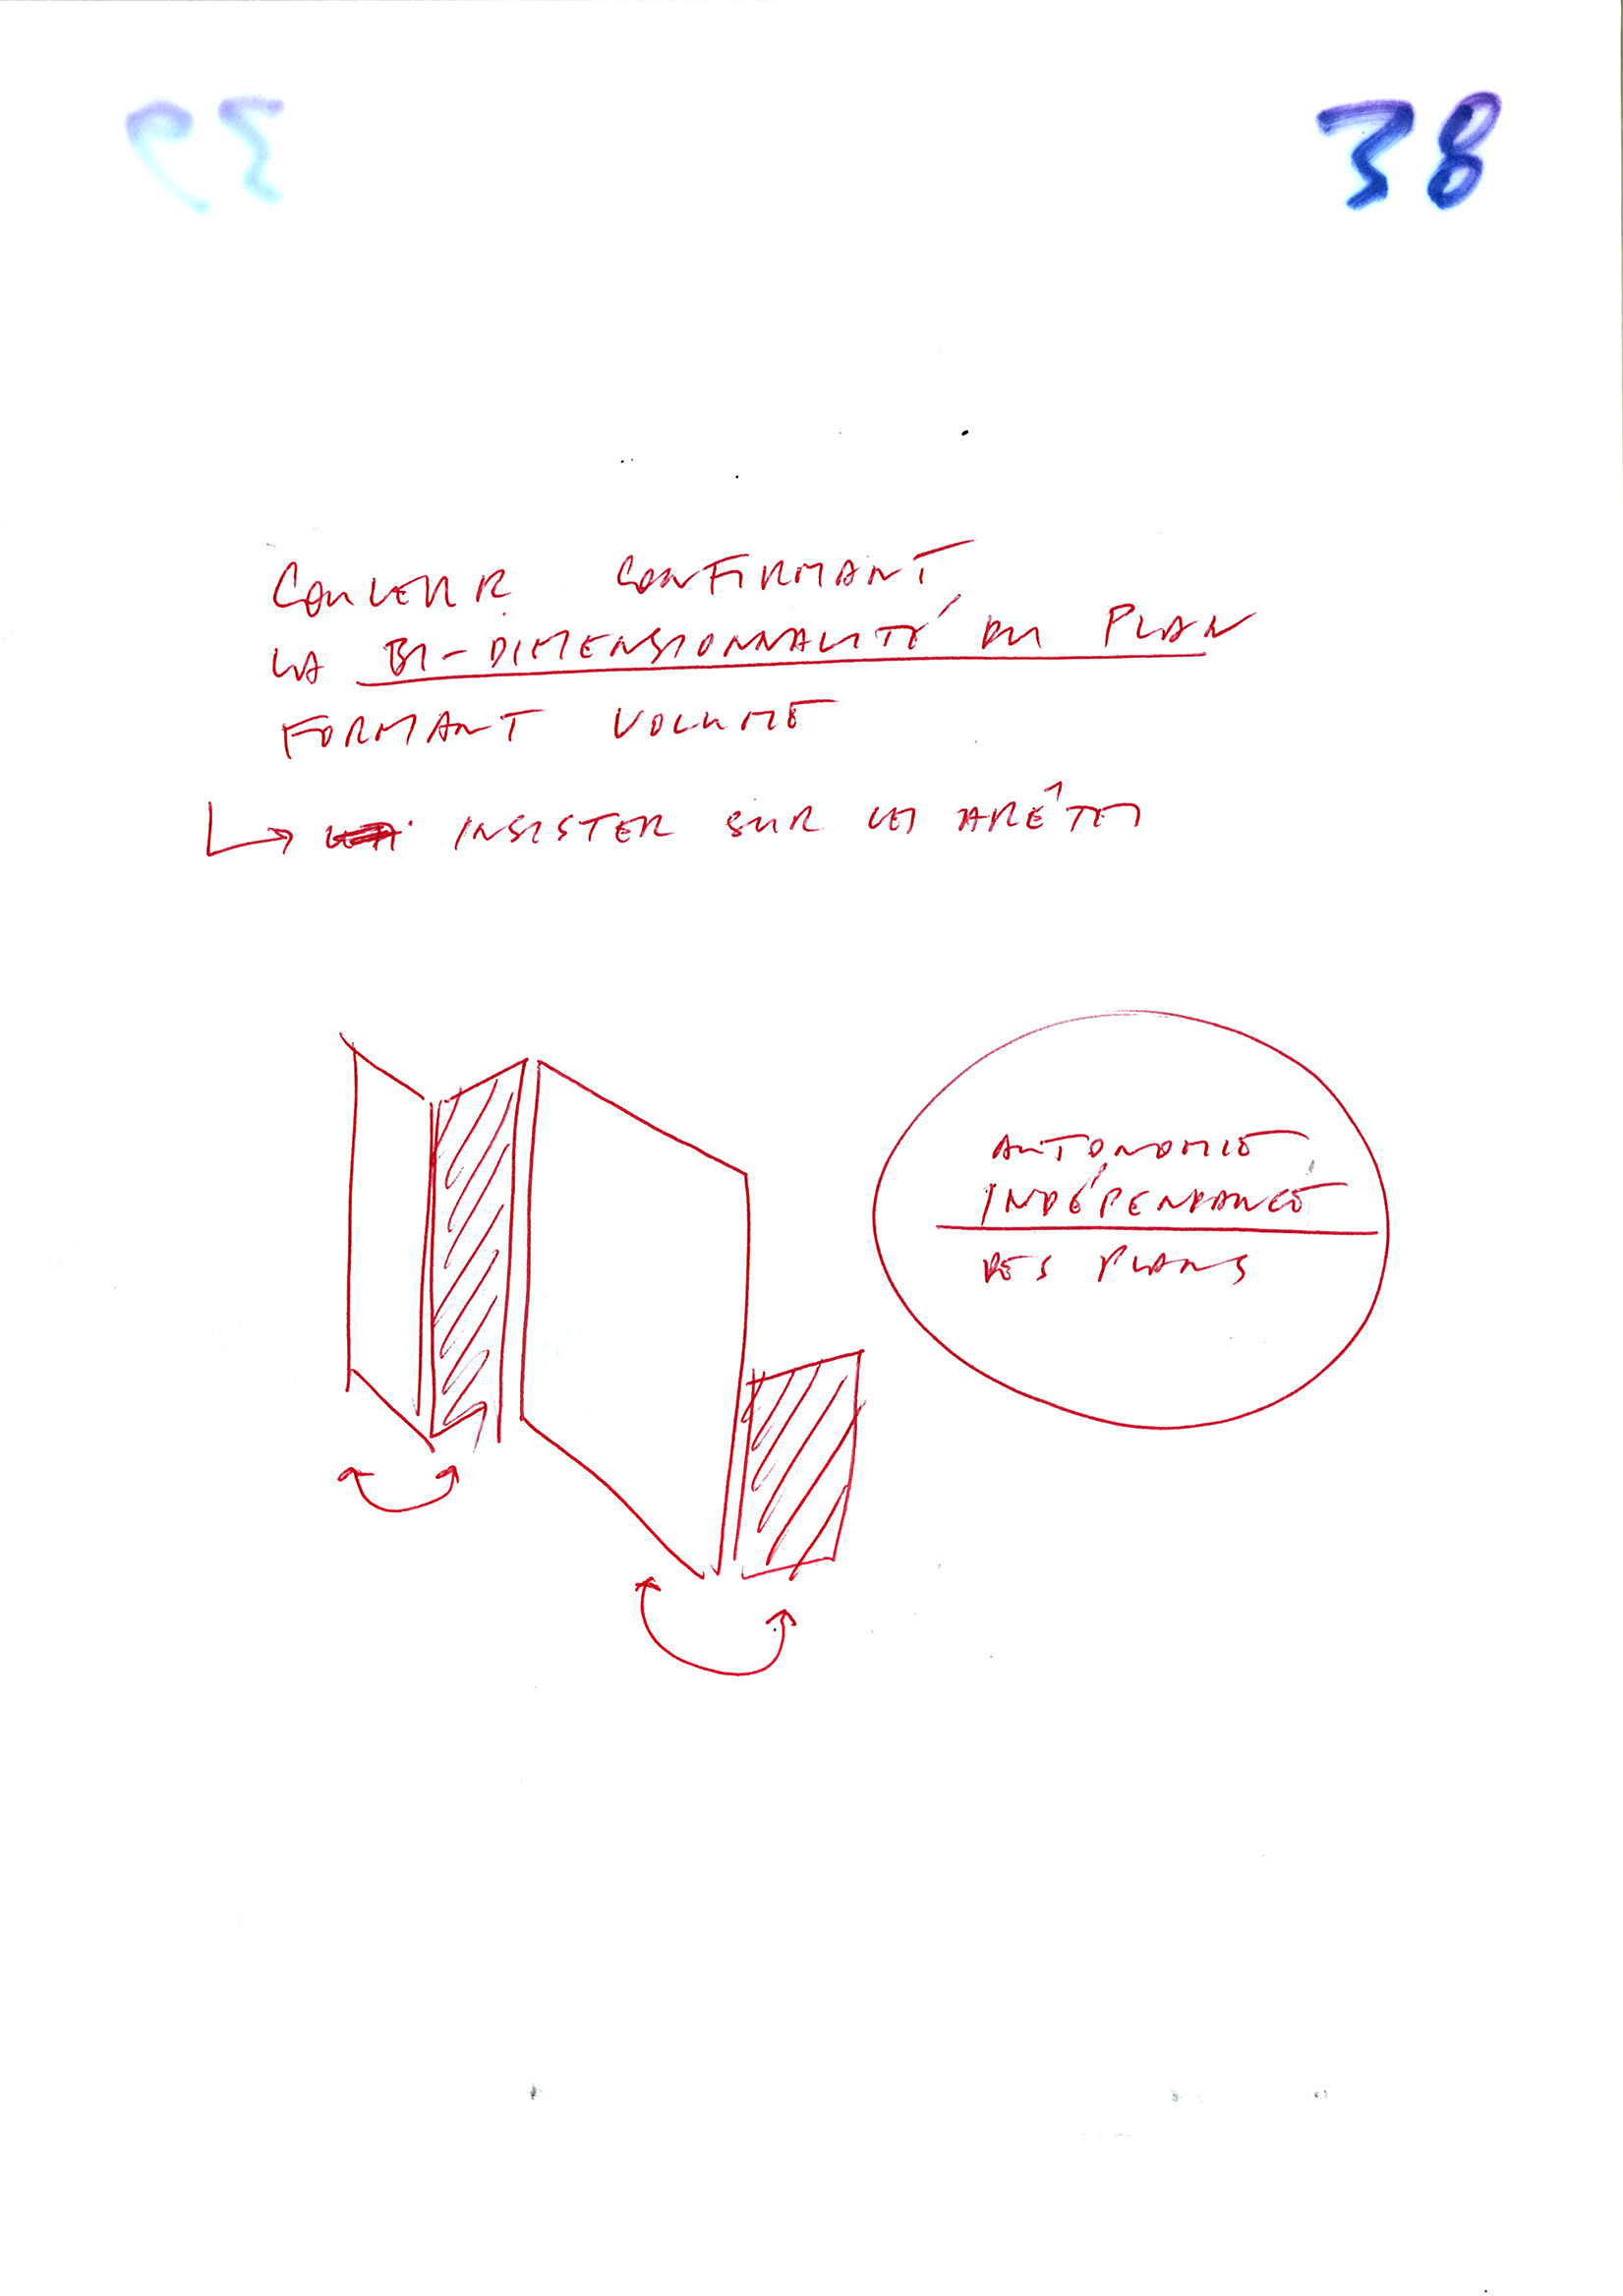 38
COULEUR CONFIRMANT
LA BI-DIMENSIONNALITÉ DU PLAN
FORMANT VOLUME
INSISTER SUR LES ARÊTES
AUTONOMIE,
INDÉPENDANCE
DES PLANS